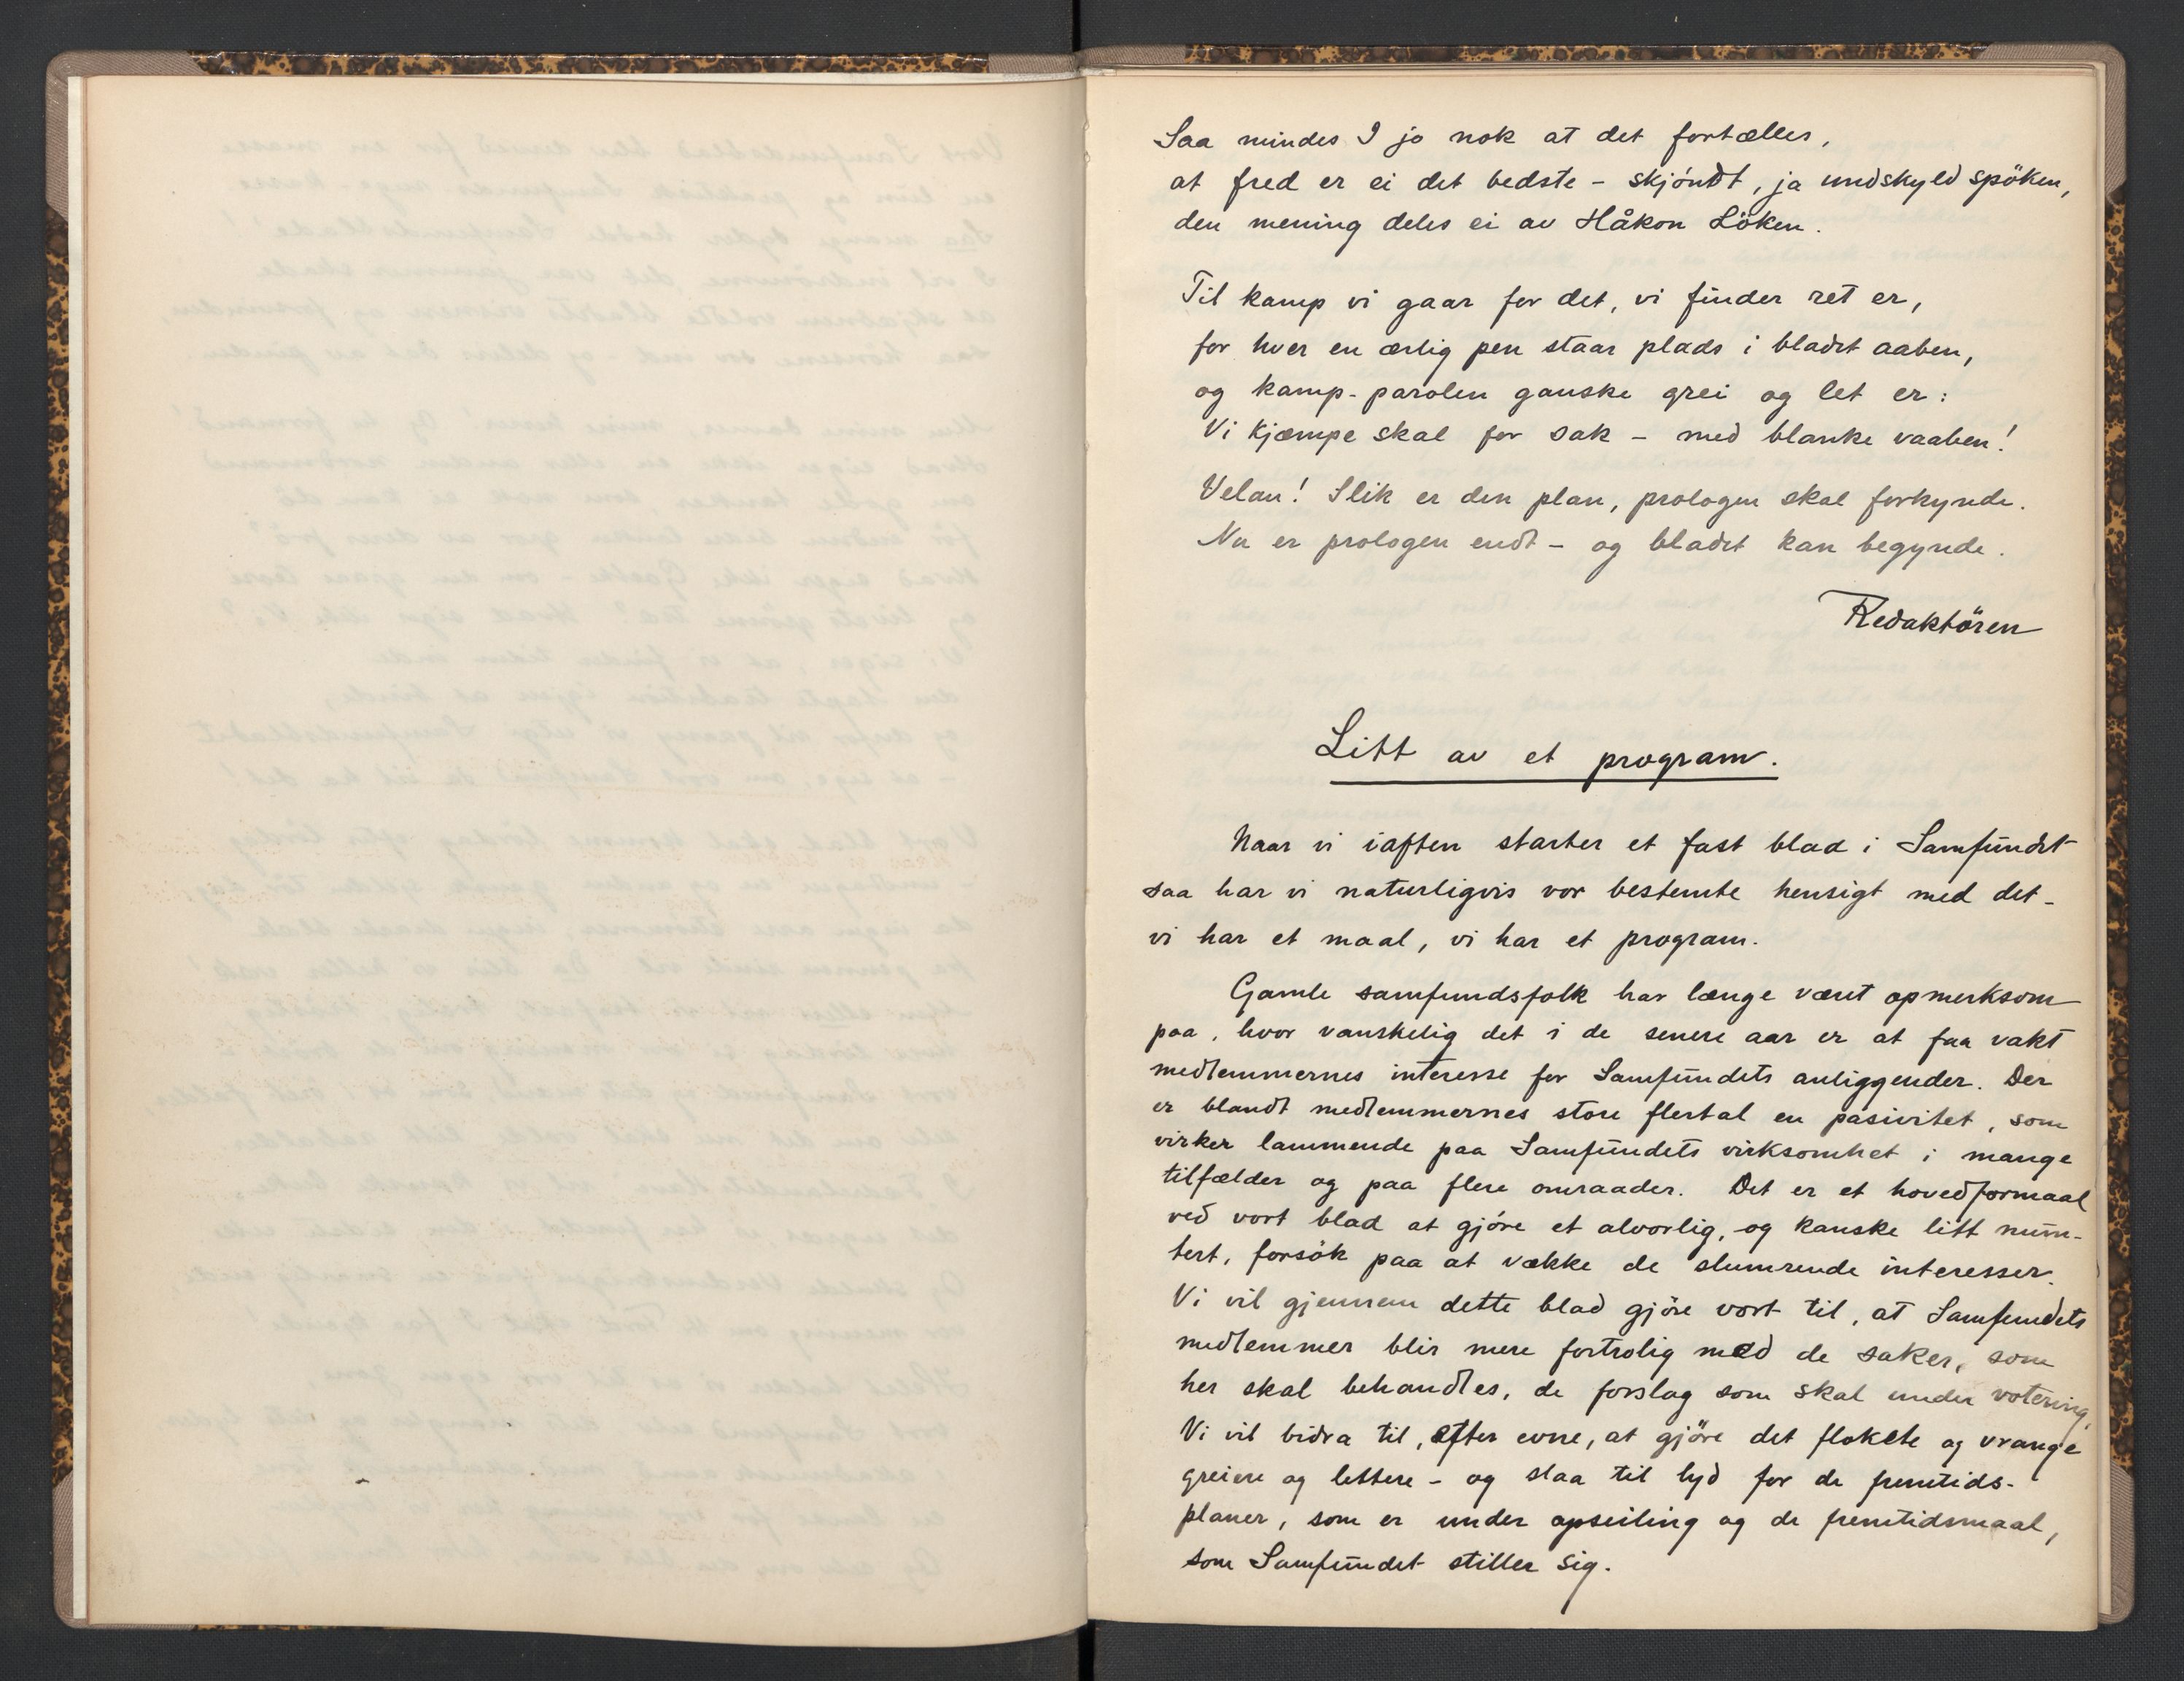 Saa mindes I jo nok at det fortælles,
at fred er ei det bedste - skjöndt, ja undskyld spöken,
den mening deles ei av Håkon Löken.
Til kamp vi gaar for det, vi finder ret er,
for hver en ærlig pen staar plads i bladet aaben,
og kamp-parolen ganske grei og let er:
Vi kjæmpe skal for sak - med blanke vaaben!
Velan! Slik er den plan, prologen skal forkynde.
Nu er prologen endt - og bladet kan begynde.
Redaktören
Litt av et program.
Naar vi iaften starter et fast blad i Samfundet
saa har vi naturligvis vor bestemte hensigt med det -
vi har et maal, vi har et program.
Gamle samfundsfolk har længe været opmerksom
paa, hvor vanskelig det i de senere aar er at faa vakt
medlemmernes interesse for Samfundets anliggender. Der
er blandt medlemmernes store flertal en pasivitet, som
virker lammende paa Samfundets virksomhet i mange
tilfælder og paa flere omraader. Det er et hovedformaal
ved vort blad at gjöre et alvorlig, og kanske litt mun-
tert, forsök paa at vække de slumrende interesser.
Vi vil gjennem dette blad gjöre vort til, at Samfundets
medlemmer blir mere fortrolig med de saker, som
her skal behandles, de forslag som skal under votering,
Vi vil bidra til, efter evne, at gjöre det flokete og vrange
greiere og lettere - og slaa til lyd for de fremtids-
planer, som er under opseiling og de fremtidsmaal,
som Samfundet stiller sig.